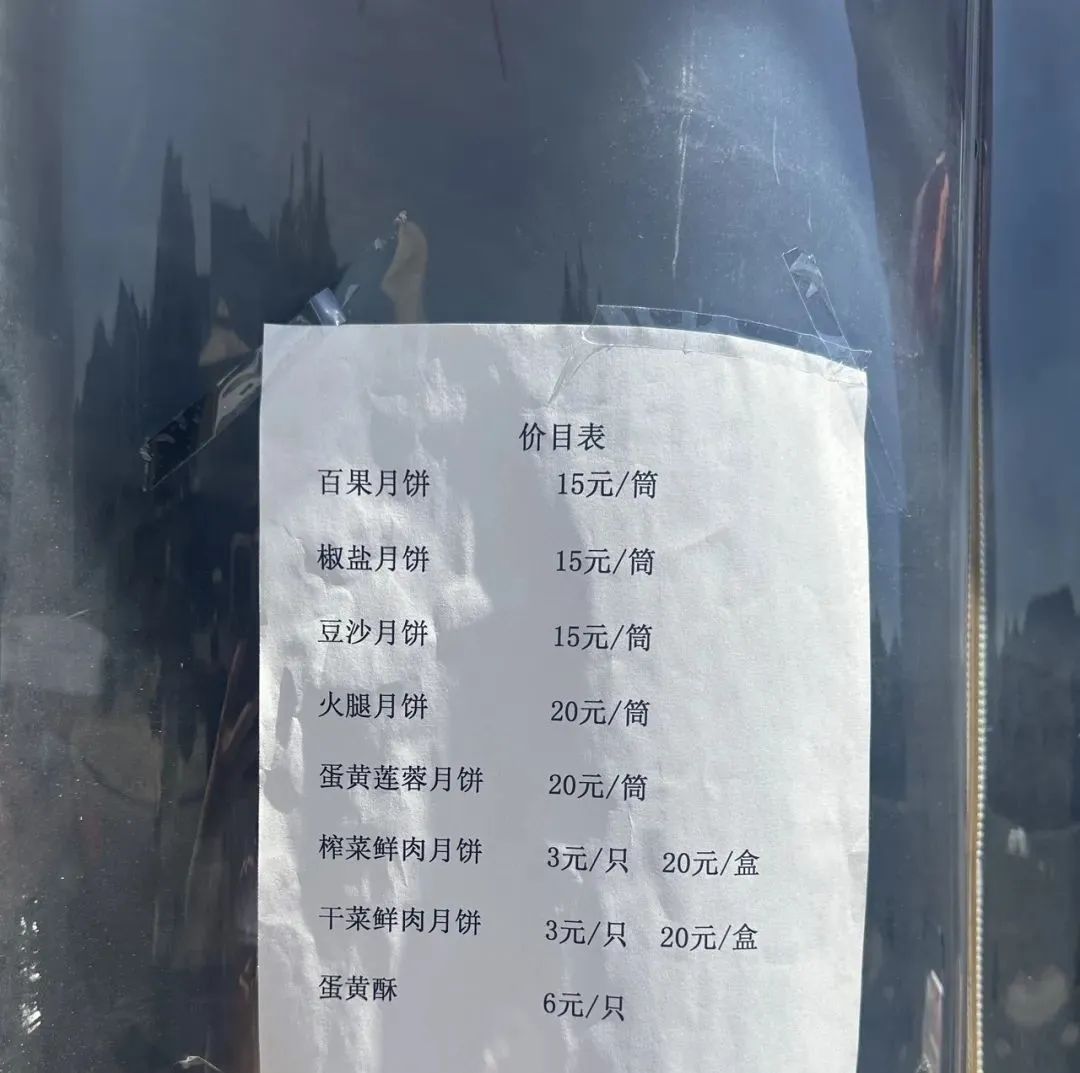 价目表
百果月饼 15元/筒
椒盐月饼 15元/筒
豆沙月饼 15元/筒
火腿月饼 20元/筒
蛋黄莲蓉月饼 20元/筒
榨菜鲜肉月饼 3元/只 20元/盒
干菜鲜肉月饼 3元/只 20元/盒
蛋黄酥 6元/只